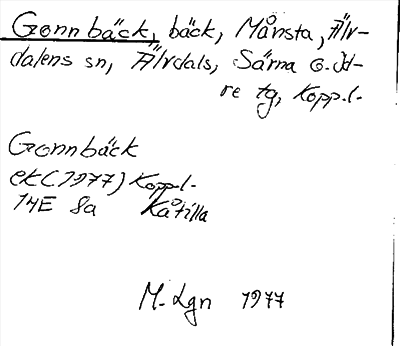 Gonnbäck, bäck, Månsta, Älv-
dalens sn, Älvdals, Särna o. Id-
re tg, Kopp.l.
Gonnbäck
ek (1977) Kopp.l.
14E 8a Kåtilla
M. Lgn 1977